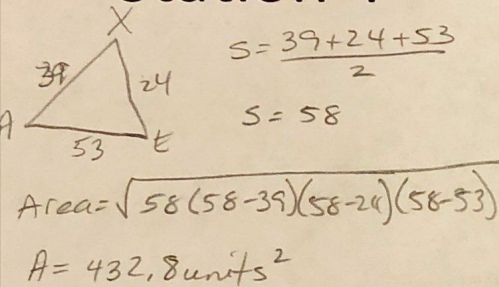 X
39
24
A
53
E
S = 39+24+53
2
S = 58
Area = √58(58-39)(58-24)(58-53)
A = 432.8 units²